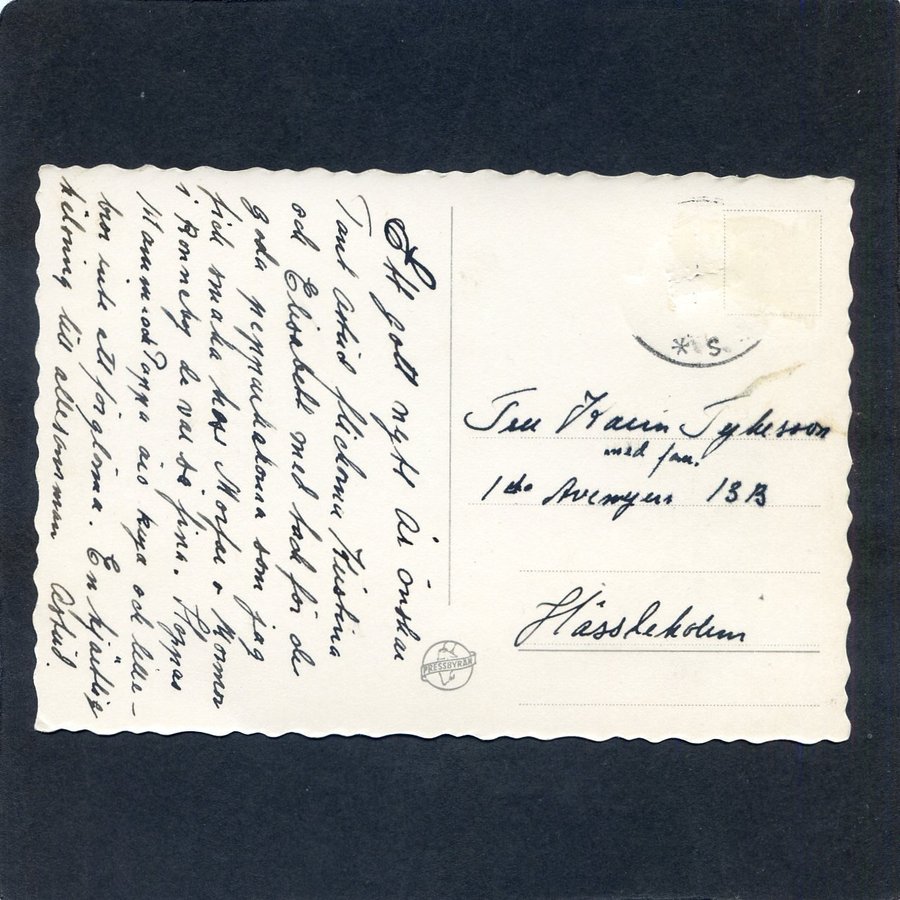 Ett gott nytt År önskar
Tant Astrid flickorna Kristina
och Elisabeth med tack för de
goda pepparkakorna som jag
fick smaka hos Morfar o Mormor
i Ronneby de var så fina. Hoppas
Mamma och Pappa äro krya och lille-
bror inte att förglöma. En hjärtlig
hälsning till allesamman Astrid.
PRESSBYRÅN
Karin Tykesson
med fam.
1sta Avenyen 13B
Hässleholm